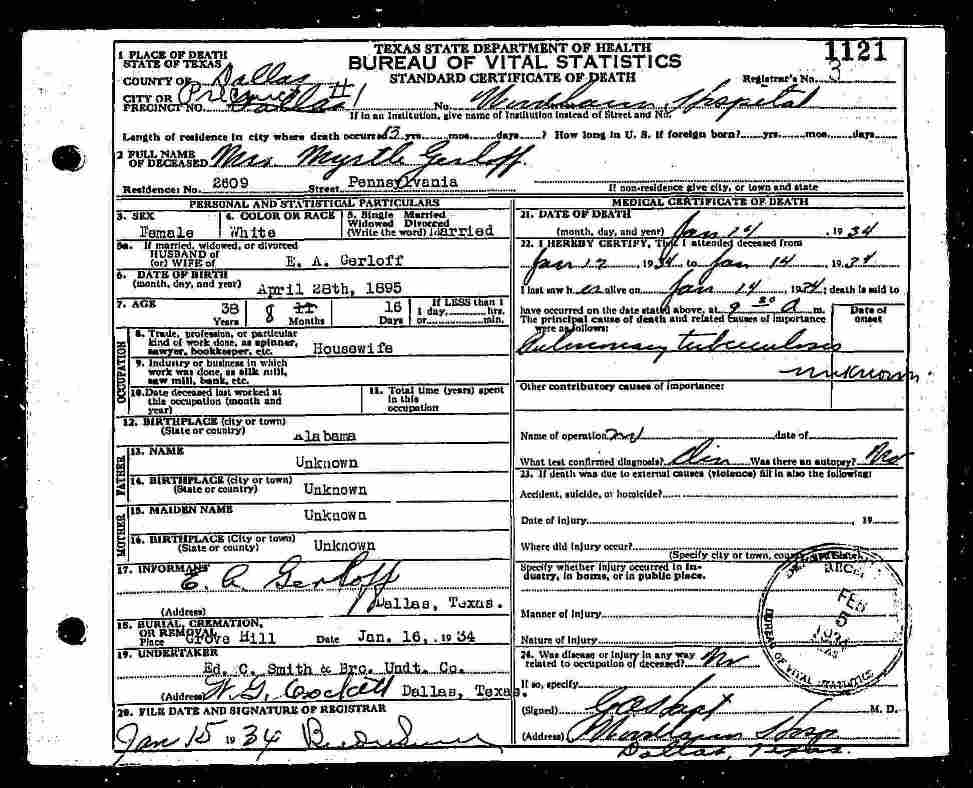 TEXAS STATE DEPARTMENT OF HEALTH
BUREAU OF VITAL STATISTICS
STANDARD CERTIFICATE OF DEATH
1121
Registrar's No. 3
1 PLACE OF DEATH
STATE OF TEXAS
COUNTY OF Dallas
CITY OR
PRECINCT NO. Precinct #1
No. Woodlawn Hospital
If in an Institution, give name of Institution instead of Street and No.
Length of residence in city where death occurred 3 yrs. mos. days ? How long in U. S. if foreign born? yrs. mos. days
2 FULL NAME
OF DECEASED Mrs. Myrtle Gerloff
Residence: No. 2609 Street Pennsylvania
If non-residence give city, or town and state
PERSONAL AND STATISTICAL PARTICULARS
3. SEX
Female
4. COLOR OR RACE
White
5. Single Married
Widowed Divorced
(Write the word) Married
5a. If married, widowed, or divorced
HUSBAND of
(or) WIFE of E. A. Gerloff
6. DATE OF BIRTH
(month, day, and year) April 28th, 1895
7. AGE 38 Years 8 Months 16 Days
If LESS than 1
1 day, hrs.
or min.
OCCUPATION
8. Trade, profession, or particular
kind of work done, as spinner,
sawyer, bookkeeper, etc. Housewife
9. Industry or business in which
work was done, as silk mill,
saw mill, bank, etc.
10. Date deceased last worked at
this occupation (month and
year)
11. Total time (years) spent
in this
occupation
12. BIRTHPLACE (city or town)
(State or country) Alabama
FATHER
13. NAME
Unknown
14. BIRTHPLACE (city or town)
(State or country) Unknown
MOTHER
15. MAIDEN NAME
Unknown
16. BIRTHPLACE (City or town)
(State or county) Unknown
17. INFORMANT
E. A. Gerloff
(Address) Dallas, Texas.
18. BURIAL, CREMATION,
OR REMOVAL
Place Grove Hill Date Jan. 16, 1934
19. UNDERTAKER
Ed. C. Smith & Bro. Undt. Co.
(Address) W. G. Cockett Dallas, Texas.
20. FILE DATE AND SIGNATURE OF REGISTRAR
Jan 15 1934
MEDICAL CERTIFICATE OF DEATH
21. DATE OF DEATH
(month, day, and year) Jan 14, 1934
22. I HEREBY CERTIFY, That I attended deceased from
Jan 12, 1934 to Jan 14 1934
I last saw her alive on Jan 14, 1934; death is said to
have occurred on the date stated above, at 9 20 A m.
The principal cause of death and related causes of importance
were as follows:
Date of
onset
Pulmonary tuberculosis
unknown.
Other contributory causes of importance:
Name of operation date of
What test confirmed diagnosis? Clin Was there an autopsy? No
23. If death was due to external causes (violence) fill in also the following:
Accident, suicide, or homicide?
Date of injury , 19
Where did injury occur?
(Specify city or town, county, and State)
Specify whether injury occurred in in-
dustry, in home, or in public place.
Manner of injury
Nature of injury
24. Was disease or injury in any way
related to occupation of deceased? No
If so, specify
(Signed) M. D.
(Address) Woodlawn Hosp
Dallas, Texas.
FEB
5
1934
BUREAU OF VITAL STATISTICS